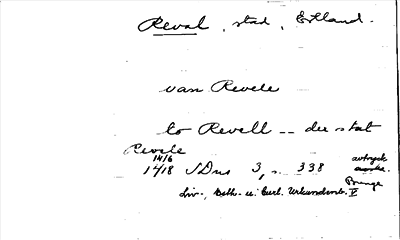 Reval, stad, Estland.
van Revele
to Revell -- der stat
Revele
1416
1418 SDns 3, s. 338 avtryck
Bunge
Liv-, Esth- u. Curl. Urkundenb. V